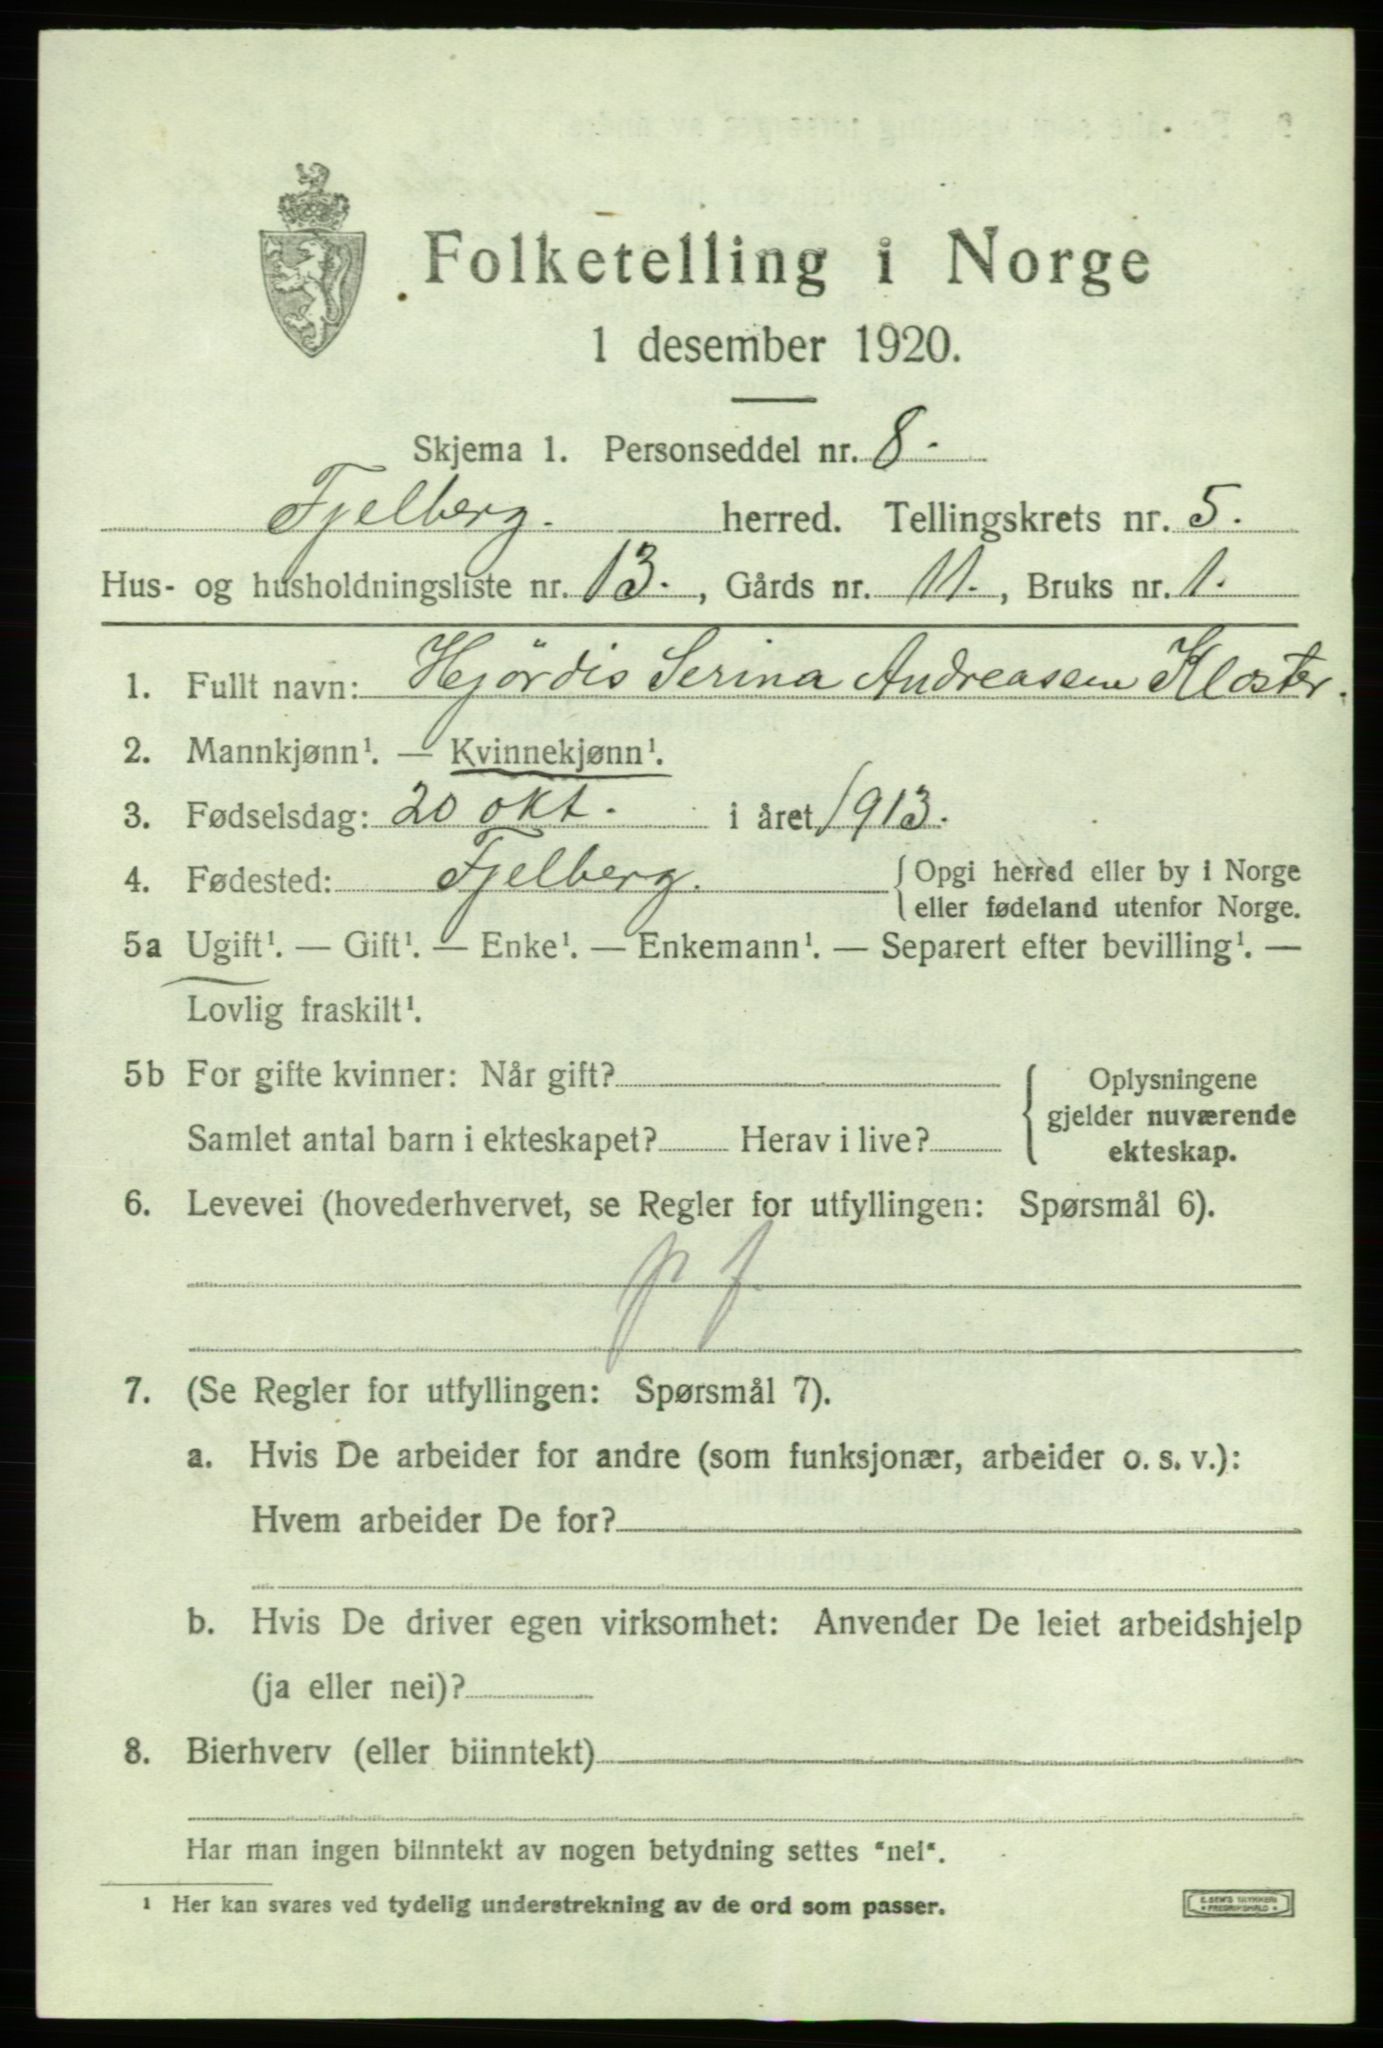 Folketelling i Norge
1 desember 1920.
Skjema 1. Personseddel nr. 8.
Fjelberg. herred. Tellingskrets nr. 5.
Hus- og husholdningsliste nr. 13., Gårds nr. 11., Bruks nr. 1.
1. Fullt navn: Hjördis Serina Andreasen Kloster.
2. Mannkjønn¹. — Kvinnekjønn¹.
3. Fødselsdag: 20 okt. i året 1913.
4. Fødested: Fjelberg. { Opgi herred eller by i Norge
eller fødeland utenfor Norge.
5a Ugift¹. — Gift¹. — Enke¹. — Enkemann¹. — Separert efter bevilling¹. —
Lovlig fraskilt¹.
5b For gifte kvinner: Når gift? { Oplysningene
gjelder nuværende
Samlet antal barn i ekteskapet? Herav i live?
ekteskap.
6. Levevei (hovederhvervet, se Regler for utfyllingen: Spørsmål 6).
p f.
7. (Se Regler for utfyllingen: Spørsmål 7).
a. Hvis De arbeider for andre (som funksjonær, arbeider o. s. v.):
Hvem arbeider De for?
b. Hvis De driver egen virksomhet: Anvender De leiet arbeidshjelp
(ja eller nei)?
8. Bierhverv (eller biinntekt)
Har man ingen biinntekt av nogen betydning settes "nei".
¹ Her kan svares ved tydelig understrekning av de ord som passer.